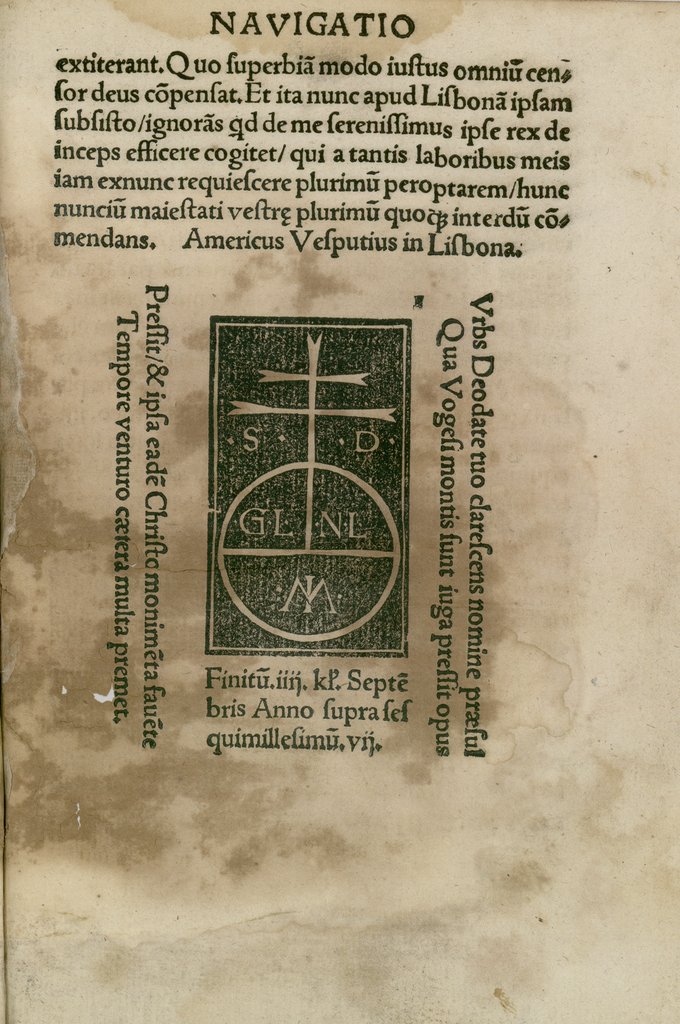 NAVIGATIO
extiterant. Quo ſuperbiã modo iuſtus omniũ cen⸗
ſor deus cõpenſat. Et ita nunc apud Liſbonã ipſam
ſubſiſto/ignorãs qd de me ſereniſſimus ipſe rex de
inceps efficere cogitet/ qui a tantis laboribus meis
iam exnunc requieſcere plurimũ peroptarem/hunc
nunciũ maieſtati veſtrę plurimũ quoqꝫ interdũ cõ⸗
mendans. Americus Veſputius in Liſbona.
Vrbs Deodate tuo clareſcens nomine præſul
Qua Vogeſi montis ſunt iuga preſſit opus
Preſſit/& ipſa eadẽ Chriſto monimẽta fauẽte
Tempore venturo cætera multa premet.
·S· ·D·
GL NL
·M·
Finitũ.iiij. kl̃. Septẽ
bris Anno ſupra ſeſ
quimilleſimũ.vij.